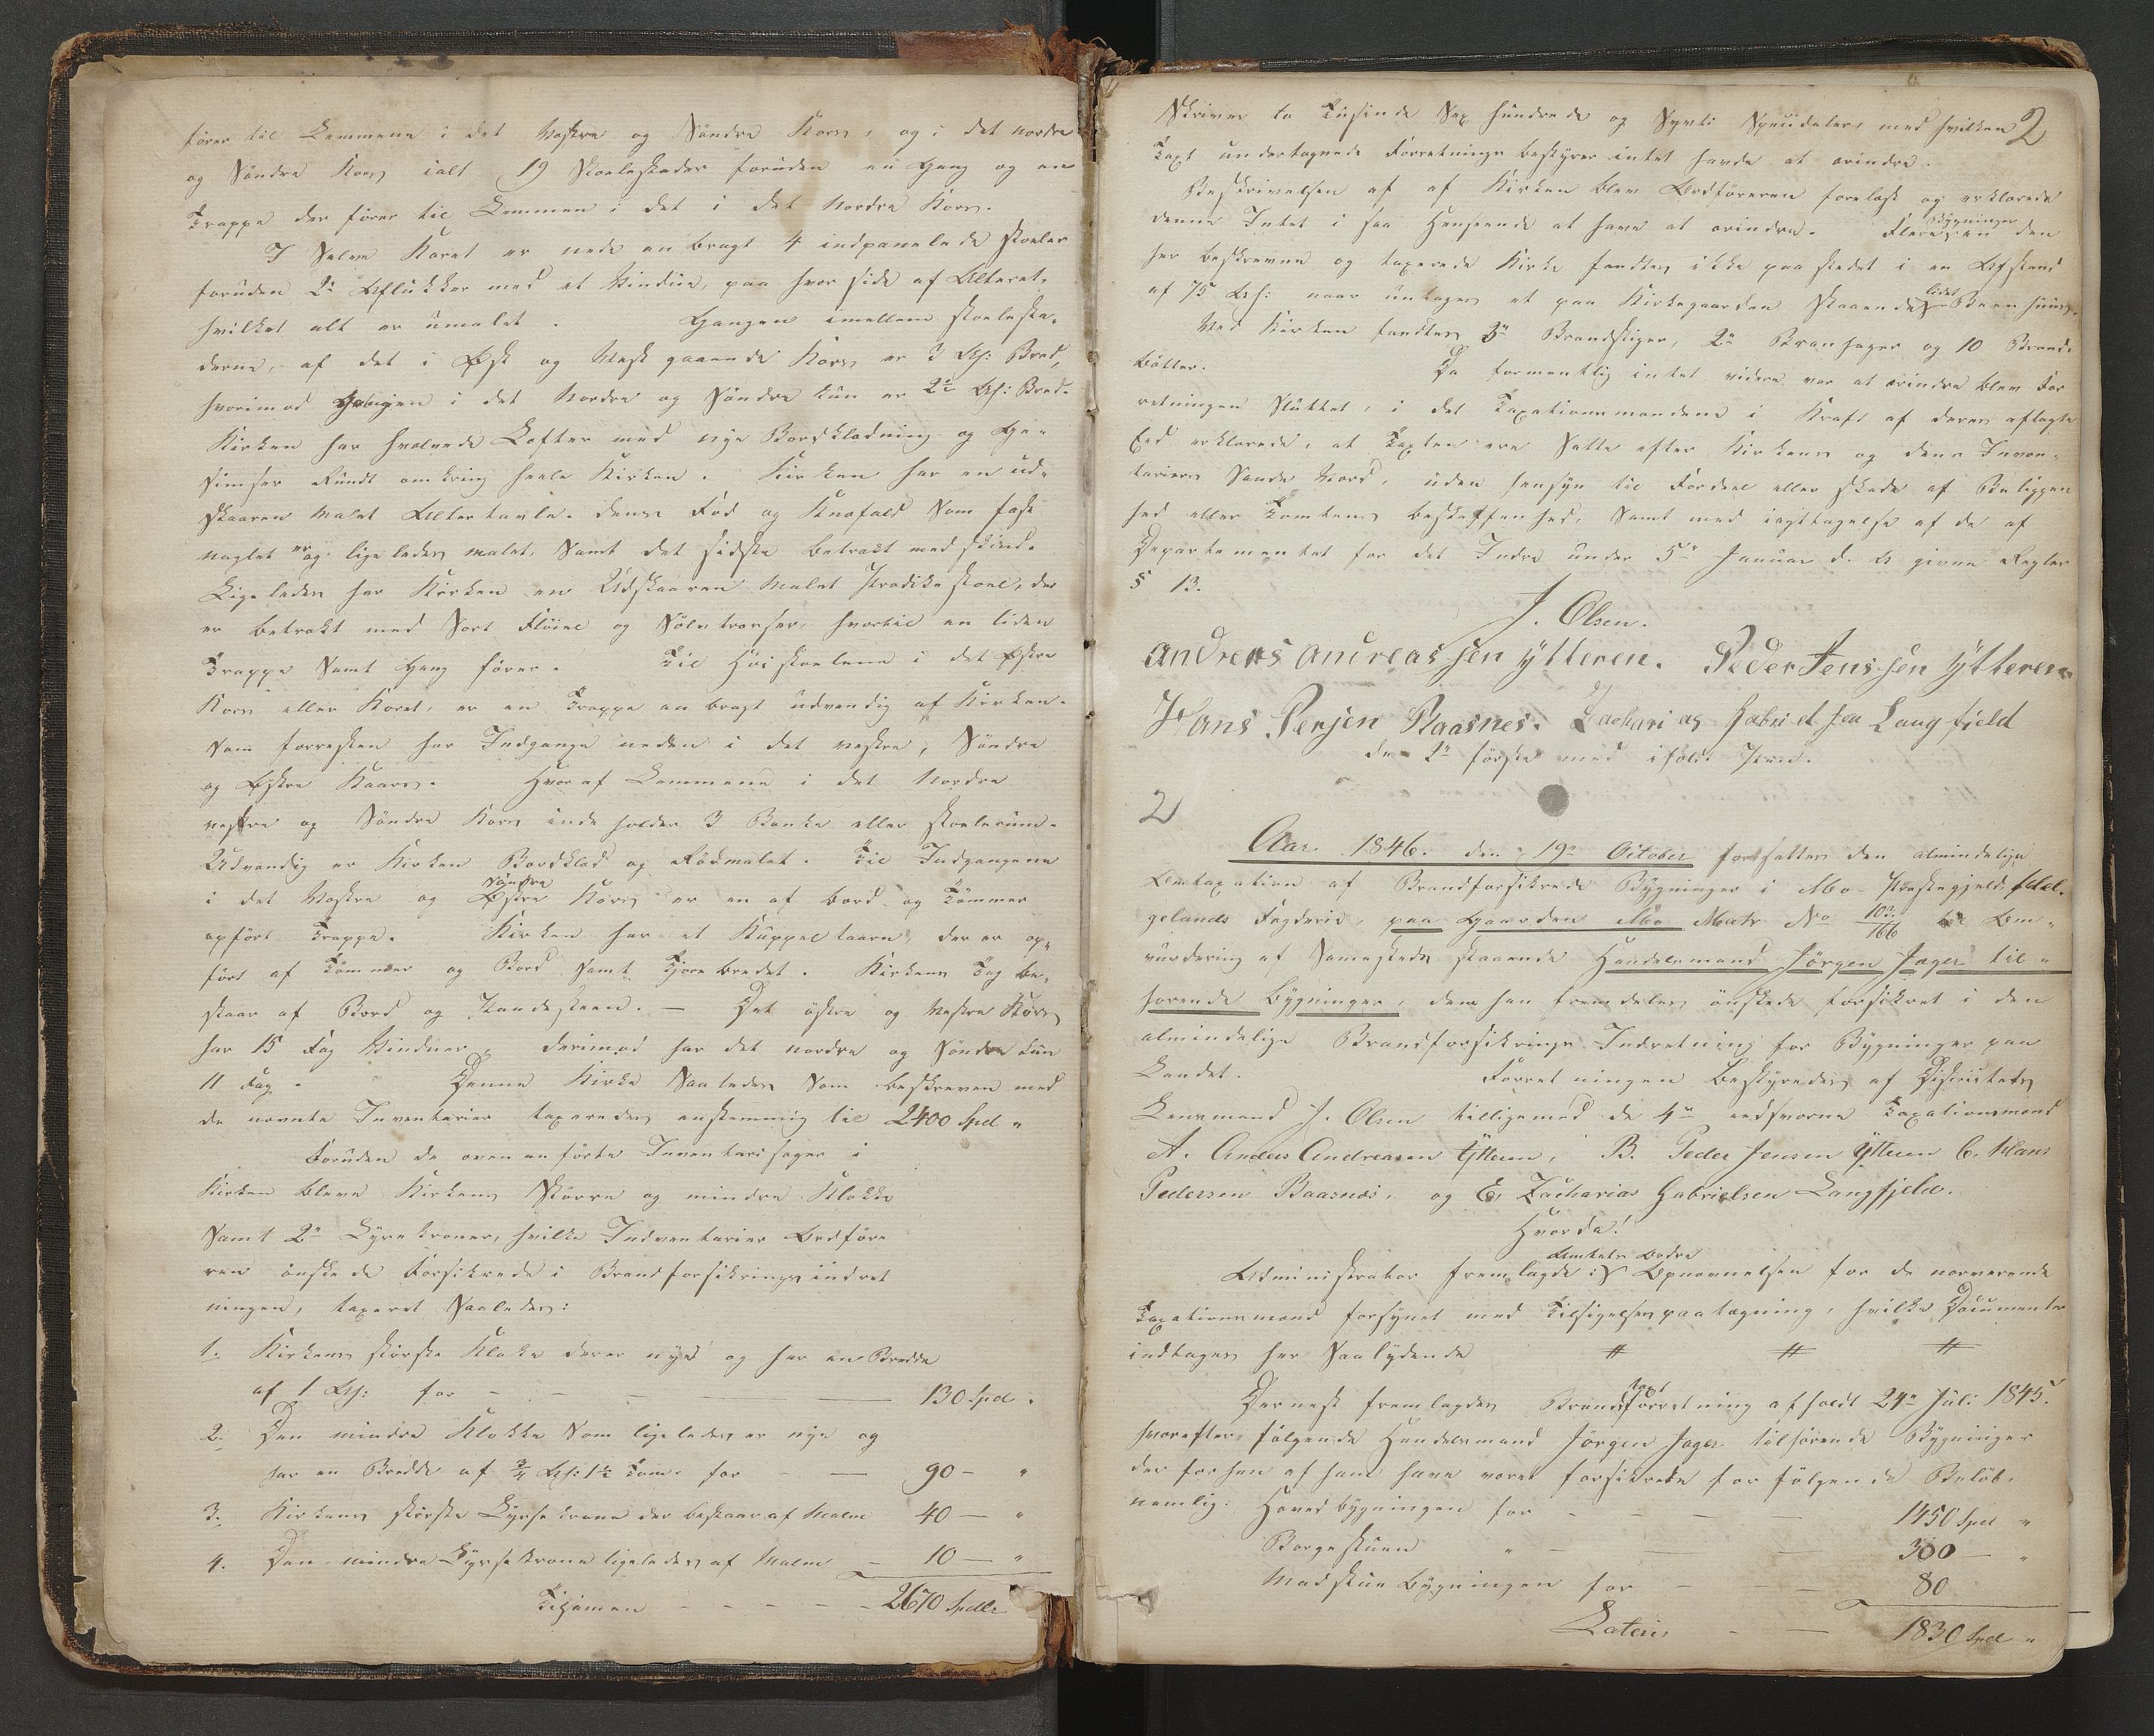 fører til Lemmene i det Vestre og Søndre Kors, og i det nordre
og Søndre Kors ialt 19 Stolestader foruden en Gang og en
Trappe der fører til Lemmen i det i det Nordre Kors.
I Selve Koret er nede anbragt 4 indpanelede Stoeler
foruden 2de Aflukker med et Vindue, paa hver side af Alteret,
hvilket alt er umalet. Gangen imellem Stolesta-
derne, af det i Øst og Vest gaaende Kors er 3 Al: Bred,
hvorimod Gangen i det Nordre og Søndre kun er 2½ Al: Bred.
Kirken har hvelvede Lofter med nye Bordklædning og Ge-
simser Rundt omkring heele Kirken. Kirken har en ud-
skaaren malet Altertavle, dens Fod og Knæfald som fast
naglet er og ligeledes malet, Samt det sidste betrækt med skind.
Ligeledes har Kirken en Udskaaren malet Prædikestoel, der
er betrækt med Sort Fløiel og Sølvtrænser, hvortil en liden
Trappe Samt Gang fører. Til Høistoelene i det Østre
Kors eller Koret, er en Trappe anbragt udvendig af Kirken.
Som forresten har Indgange neden i det vestre, Søndre
og Østre Kaars. Hvoraf Lemmene i det Nordre
vestre og Søndre Kors indeholder 3 Bænke eller Stolerum.
Udvendig er Kirken Bordklæd og Rødmalet. Til Indgangene
i det Vestre og Østre Søndre Kors er en af bord og Tømmer
opført Trappe. Kirken har et Kuppeltaarn, der er op-
ført af Tømmer og Bord Samt Tjærebredet. Kirkens Tag be-
staar af Bord og Tandsteen. — Det østre og Vestre Kors
har 15 Fag Vinduer, derimod har det nordre og Søndre kun
11 Fag. Denne Kirke Saaledes Som beskreven med
de nævnte Inventarier taxeredes enstemmig til 2400 Spd "
Foruden de ovenanførte Inventarisager i
Kirken bleve Kirkens Større og mindre Klokke
Samt 2de Lysekroner, hvilke Indventarier Ordføre
ren ønskede Forsikrede i Brandforsikringsindret
ningen, taxeret Saaledes:
1. Kirkens største Klokke derer nye og har en Bredde
af 1 Al: for — 130 Spd.
2. Den mindre Klokke Som ligeledes er nye og
har en Bredde af ¾ Al: 1½ Tom. for — 90 — "
3. Kirkens største Lysekrone der bestaar af Malm 40 — "
4. Den mindre Lysekrone ligeledes af Malm — 10 — "
Tilsamen — 2670 Spdlr
2
Skriver to Tusinde Sex hundrede og Sytti Speciedaler, med hvilken
Taxt undertegnede Forretnings bestyrer intet havde at erindre.
Beskrivelsen af af Kirken blev Ordføreren forelæst og erklærede
denne Intet i saa Henseende at have at erindre. Flere Bygninger en den
her beskrevne og taxerede Kirke fandtes ikke paa stedet i en Afstand
af 75 Al: naar undtages et paa Kirkegaarden staaende lidet Beenhuus.
Ved Kirken fandtes 3de Brandstiger, 2de Branhager og 10 Brand-
bøtter. Da formentlig intet videre var at erindre blev For
retningen Sluttet, i det Taxationsmændene i Kraft af deres aflagte
Eed erklærede, at Taxten ere Satte efter Kirkens og dens Inven-
tariers Sande Værd, uden hensyn til Fordeel eller skade af Beliggen
hed eller Tomtens beskaffenhed, Samt med iagttagelse af de af
Departementet for det Indre under 5te Januar d. A givne Regler
§ 13.
J. Olsen.
Andreas Andreassen Ytteren. Peder Jenssen Ytteren
Hans Persen Baasnes. Zacharias Gabrielsen Langfjeld
de 2de første med iholdt Pen.
2
Aar 1846. den 19de October fortsattes den almindelige
Omtaxation af Brandforsikrede Bygninger i Mo-Præstegjeld Hel-
gelands Fogderie, paa Gaarden Mo Matr No 103/166 til Om-
vurdering af Sammesteds staaende Handelsmand Jørgen Jager til-
hørende bygninger, dem han fremdeles ønskede forsikret i den
almindelige Brandforsikrings Indretning for Bygninger paa
Landet. Forretningen bestyredes af Districtets
Lensmand J. Olsen tilligemed de 4re eedsvorne Taxationsmænd
A. Anders Andreasen Ytteren, B. Peder Jensen Ytteren C. Hans
Pedersen Baasnæs, og E. Zacharias Gabrielsen Langfjeld.
Hvorda!
Administrator fremlagde: Amtets Ordre Opnævnelsen for de nærværende
Taxationsmænd forsynet med Tilsigelsespaategning, hvilke Documenter
indtages her Saalydende # # #
Dernest fremlagdes Brandtaxtforretning afholdt 24de Juli 1845.
hvorefter følgende Handelsmand Jørgen Jager tilhørende Bygninger
der forhen af ham have været forsikrede for følgende Beløb.
nemlig: Hovedbygningen for — 1450 Spd "
Borgestuen " — 300 — "
Madstuebygningen for — 80
Lateris — 1830 Spd "